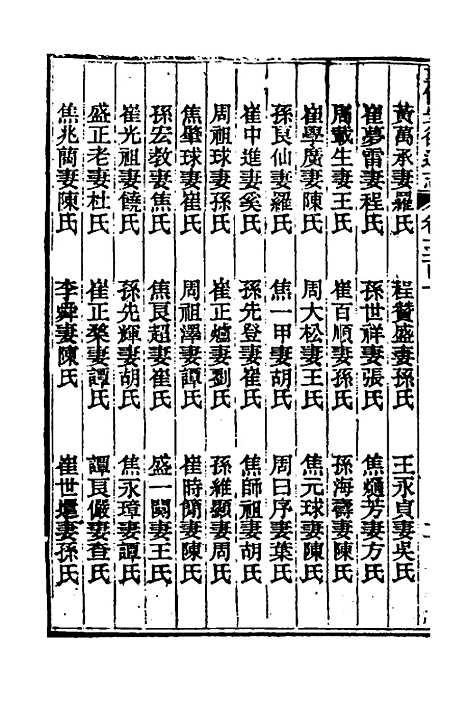 黃萬承妻羅氏 程贊盛妻孫氏 王永貞妻吳氏
崔夢雷妻程氏 孫世祥妻張氏 焦 芳妻方氏
周載生妻王氏 崔百順妻孫氏 孫海壽妻陳氏
崔學廣妻陳氏 周大松妻王氏 焦元球妻陳氏
孫良仙妻羅氏 焦一甲妻胡氏 周日序妻葉氏
崔中進妻奚氏 孫先登妻崔氏 焦師祖妻胡氏
周祖球妻孫氏 崔正爐妻劉氏 孫維顯妻周氏
焦肇球妻崔氏 周祖澤妻譚氏 崔時簡妻陳氏
孫宏教妻焦氏 焦良超妻崔氏 盛一閱妻王氏
崔光祖妻饒氏 孫先輝妻胡氏 焦永璋妻譚氏
盛正老妻杜氏 崔正榮妻譚氏 譚良儼妻查氏
焦兆蘭妻陳氏 李舜妻陳氏 崔世 妻孫氏